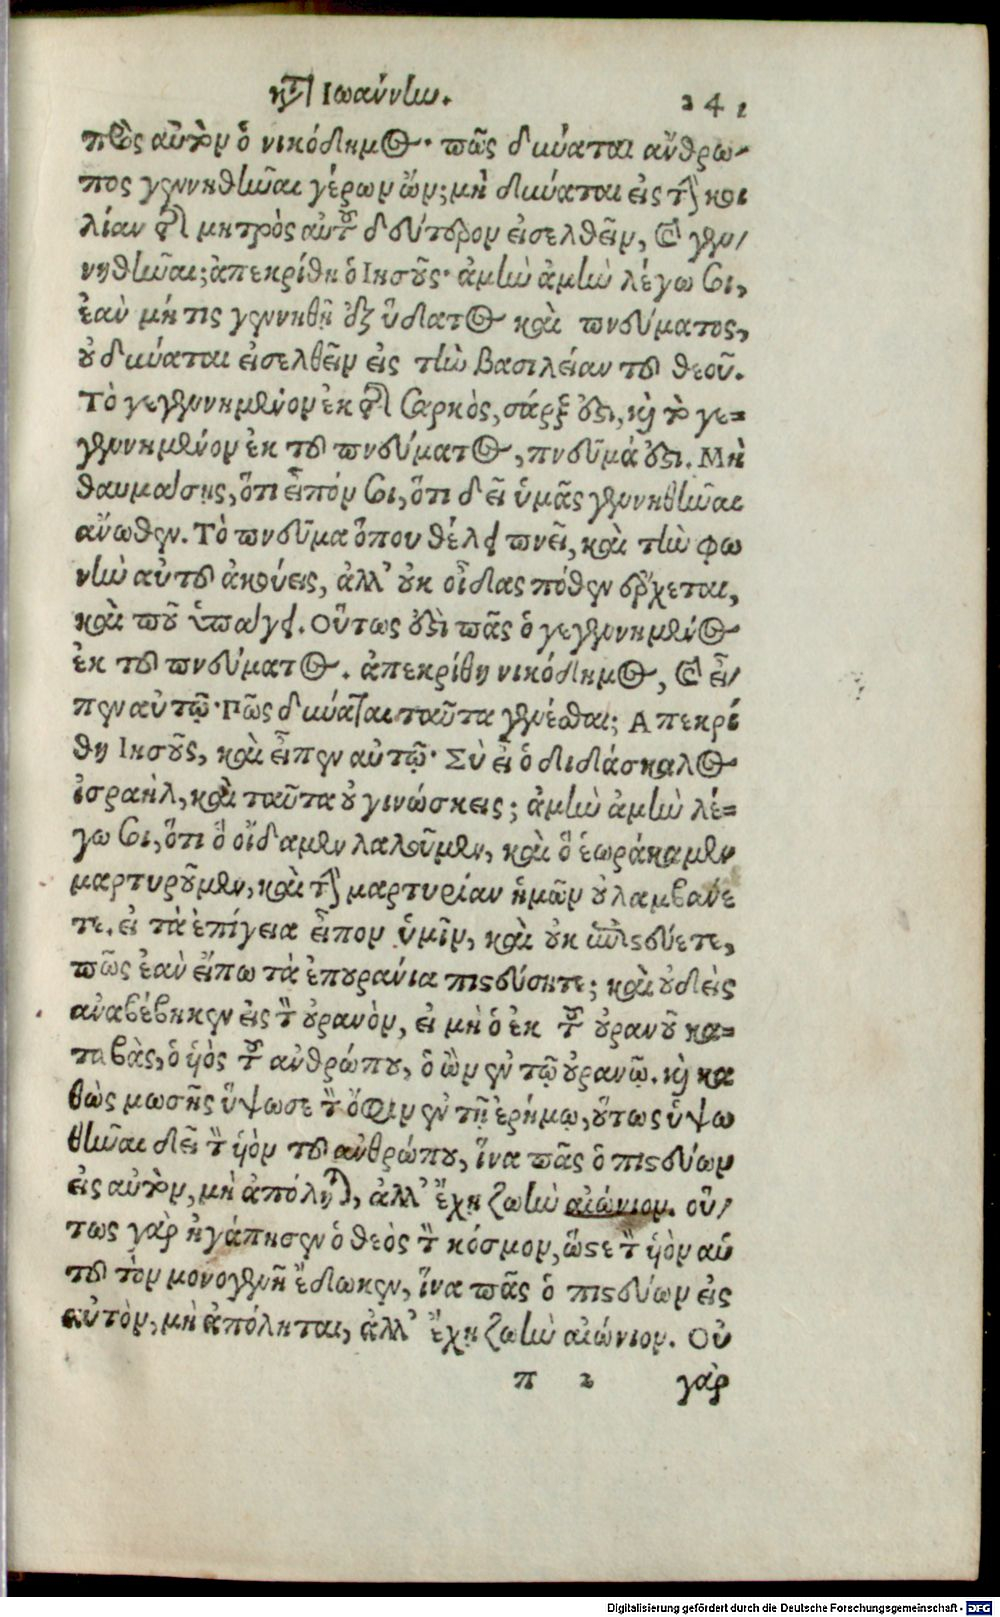 κατὰ Ἰωάννην. 241
πρὸς αὐτὸν ὁ νικόδημος· πῶς δύναται ἄνθρω-
πος γεννηθῆναι γέρων ὤν; μὴ δύναται εἰς τὴν κοι
λίαν τῆς μητρὸς αὐτοῦ δεύτερον εἰσελθεῖν, καὶ γεν-
νηθῆναι; ἀπεκρίθη ὁ Ιησοῦς· ἀμὴν ἀμὴν λέγω σοι,
ἐὰν μή τις γεννηθῇ ἐξ ὕδατος καὶ πνεύματος,
οὐ δύναται εἰσελθεῖν εἰς τὴν βασιλείαν τοῦ θεοῦ.
Τὸ γεγεννημένον ἐκ τῆς σαρκὸς, σάρξ ἐστι, καὶ τὸ γε-
γεννημένον ἐκ τοῦ πνεύματος, πνεῦμά ἐστι. Μὴ
θαυμάσῃς, ὅτι εἶπόν σοι, ὅτι δεῖ ὑμᾶς γεννηθῆναι
ἄνωθεν. Τὸ πνεῦμα ὅπου θέλει πνεῖ, καὶ τὴν φω
νὴν αὐτοῦ ἀκούεις, ἀλλ' οὐκ οἶδας πόθεν ἔρχεται,
καὶ ποῦ ὑπάγει. Οὕτως ἐστὶ πᾶς ὁ γεγεννημένος
ἐκ τοῦ πνεύματος. ἀπεκρίθη νικόδημος, καὶ εἶ-
πεν αὐτῷ· Πῶς δύναται ταῦτα γενέσθαι; Απεκρί
θη Ιησοῦς, καὶ εἶπεν αὐτῷ· Σὺ εἶ ὁ διδάσκαλος
ἰσραὴλ, καὶ ταῦτα οὐ γινώσκεις; ἀμὴν ἀμὴν λέ-
γω σοι, ὅτι ὃ οἴδαμεν λαλοῦμεν, καὶ ὃ ἑωράκαμεν
μαρτυροῦμεν, καὶ τὴν μαρτυρίαν ἡμῶν οὐ λαμβάνε
τε. εἰ τὰ ἐπίγεια εἶπον ὑμῖν, καὶ οὐκ πιστεύετε,
πῶς ἐὰν εἴπω τὰ ἐπουράνια πιστεύσητε; καὶ οὐδεὶς
ἀναβέβηκεν εἰς τὸν οὐρανὸν, εἰ μὴ ὁ ἐκ τοῦ οὐρανοῦ κα-
ταβὰς, ὁ υἱὸς τοῦ ἀνθρώπου, ὁ ὢν ἐν τῷ οὐρανῷ. καὶ κα
θὼς μωσῆς ὕψωσε τὸν ὄφιν ἐν τῇ ἐρήμῳ, οὕτως ὑψω
θῆναι δεῖ τὸν υἱὸν τοῦ ἀνθρώπου, ἵνα πᾶς ὁ πιστεύων
εἰς αὐτὸν, μὴ ἀπόληται, ἀλλ' ἔχῃ ζωὴν αἰώνιον. οὕ-
τως γὰρ ἠγάπησεν ὁ θεὸς τὸν κόσμον, ὥστε τὸν υἱὸν αὑ
τοῦ τὸν μονογενῆ ἔδωκεν, ἵνα πᾶς ὁ πιστεύων εἰς
αὐτὸν, μὴ ἀπόληται, ἀλλ' ἔχῃ ζωὴν αἰώνιον. Οὐ
π 2 γὰρ
Digitalisierung gefördert durch die Deutsche Forschungsgemeinschaft - DFG